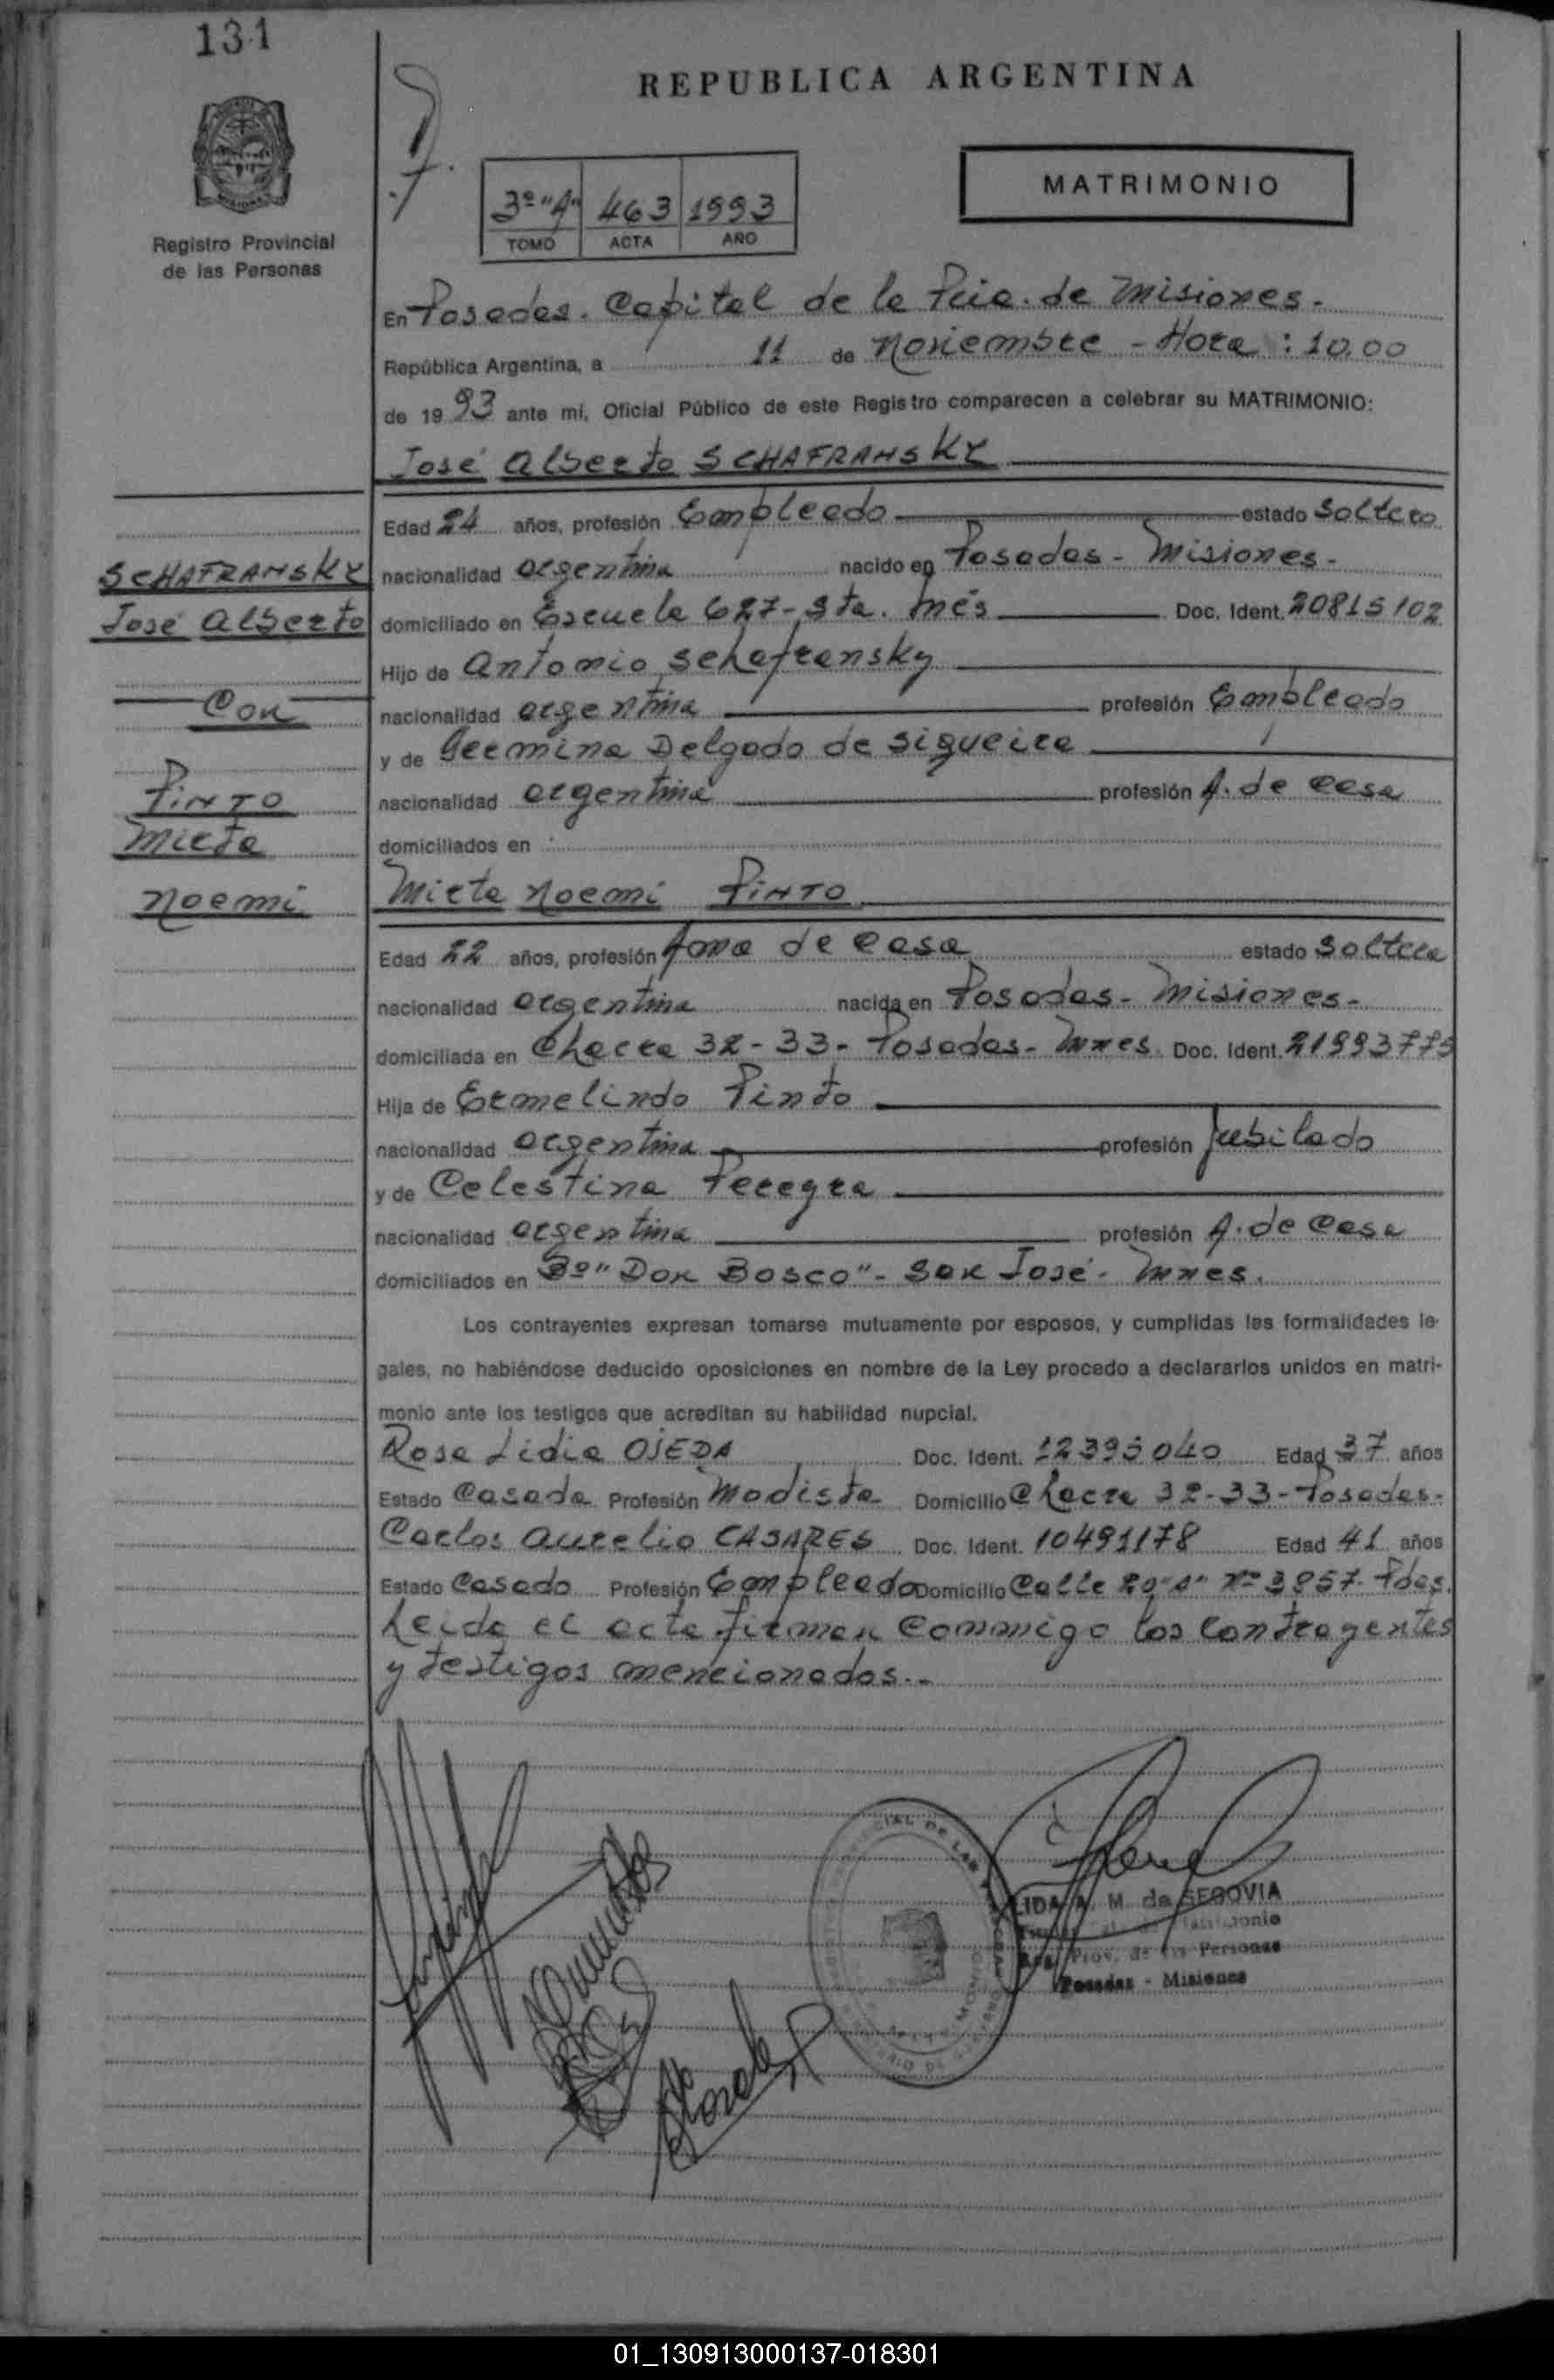 131
REPUBLICA ARGENTINA
MATRIMONIO
3º "A" 463 1993
TOMO ACTA AÑO
Registro Provincial
de las Personas
En Posadas. Capital de la Pcia. de Misiones.
República Argentina, a 11 de Noviembre - Hora : 10.00
de 19 93 ante mí, Oficial Público de este Registro comparecen a celebrar su MATRIMONIO:
José Alberto SCHAFRANSKY
Edad 24 años, profesión Empleado estado Soltero
SCHAFRANSKY
José Alberto
Con
PINTO
Mirta
Noemi
nacionalidad argentina nacido en Posadas - Misiones -
domiciliado en Escuela 627 - Sta. Inés Doc. Ident. 20815102
Hijo de Antonio Schafransky
nacionalidad argentina profesión Empleado
y de Germina Delgado de Siqueira
nacionalidad argentina profesión A. de Casa
domiciliados en
Mirta Noemi PINTO
Edad 22 años, profesión Ama de Casa estado Soltera
nacionalidad argentina nacida en Posadas - Misiones -
domiciliada en Chacra 32-33 - Posadas - Mnes. Doc. Ident. 21993775
Hija de Ermelindo Pinto
nacionalidad argentina profesión Jubilado
y de Celestina Pereyra
nacionalidad argentina profesión A. de Casa
domiciliados en Bº "Don Bosco" - San José - Mnes.
Los contrayentes expresan tomarse mutuamente por esposos, y cumplidas las formalidades le-
gales, no habiéndose deducido oposiciones en nombre de la Ley procedo a declararlos unidos en matri-
monio ante los testigos que acreditan su habilidad nupcial.
Rosa Lidia OJEDA Doc. Ident. 12395040 Edad 37 años
Estado Casada Profesión Modista Domicilio Chacra 32-33 - Posadas -
Carlos Aurelio CASARES Doc. Ident. 10491178 Edad 41 años
Estado Casado Profesión Empleado Domicilio Calle 20 "A" Nº 3957. Pdas.
Leida el acta firman conmigo los contrayentes
y testigos mencionados. -
LIDA A. M. de SEGOVIA
Reg. Prov. de las Personas
Posadas - Misiones
01_130913000137-018301